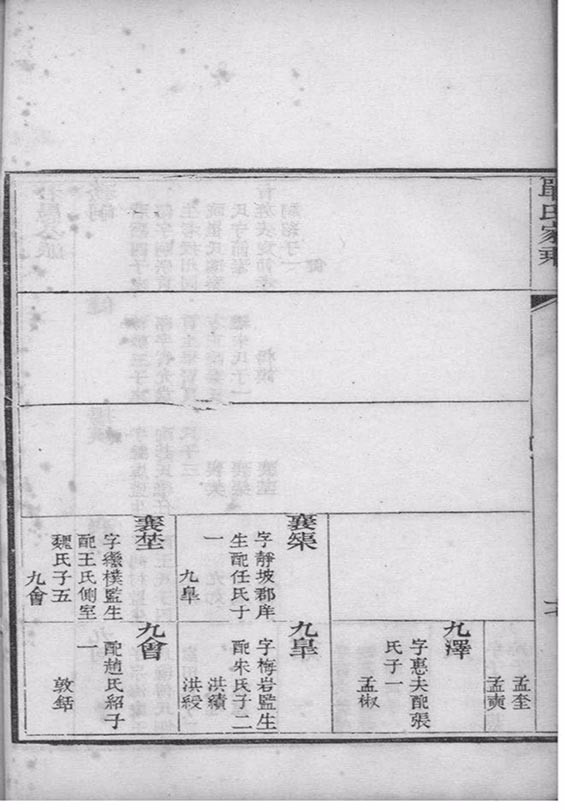 氏家乘
孟奎
孟奭
九澤
字惠夫配張
氏子一
孟椒
襄渠
字靜坡郡庠
生配任氏子
一
九皐
九皐
字梅岩監生
配朱氏子二
洪績
洪綬
襄埜
字樸監生
配王氏側室
魏氏子五
九會
九會
配趙氏紹子
一
敦銛